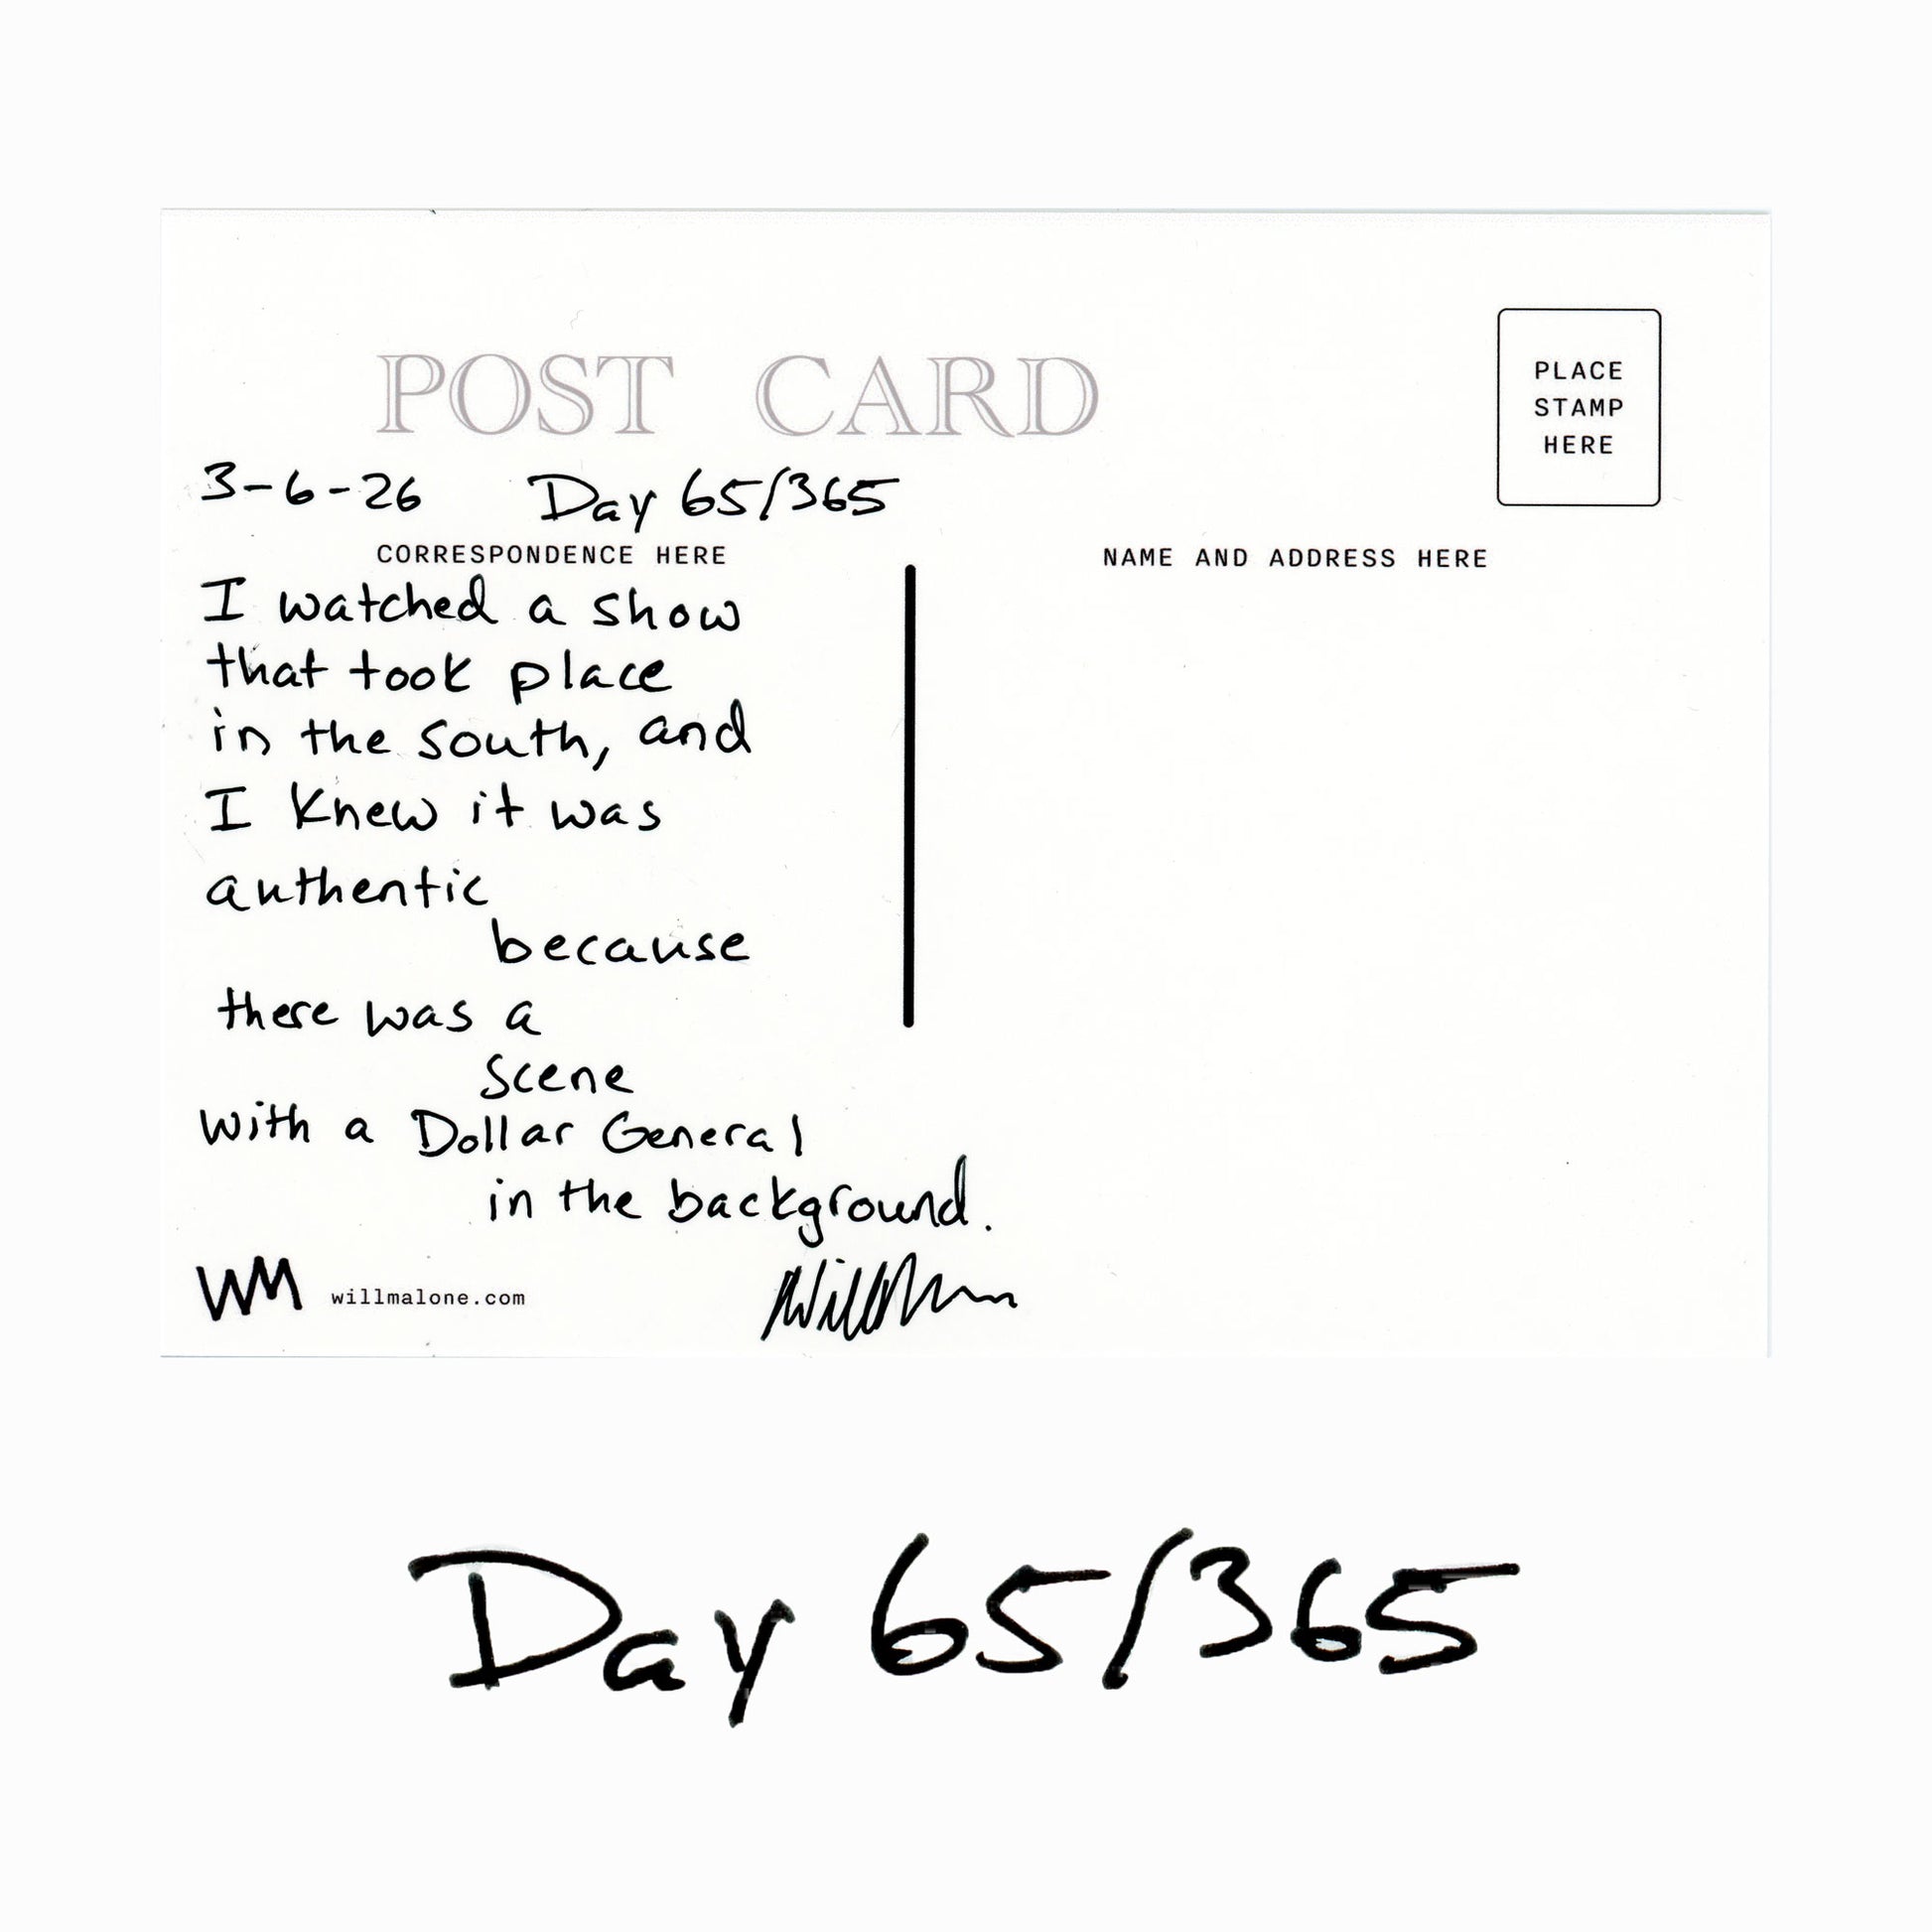 POST CARD
PLACE
STAMP
HERE
3-6-26 Day 65/365
CORRESPONDENCE HERE
NAME AND ADDRESS HERE
I watched a show
that took place
in the south, and
I knew it was
authentic
because
there was a
scene
with a Dollar General
in the background.
WM willmalone.com
Day 65/365